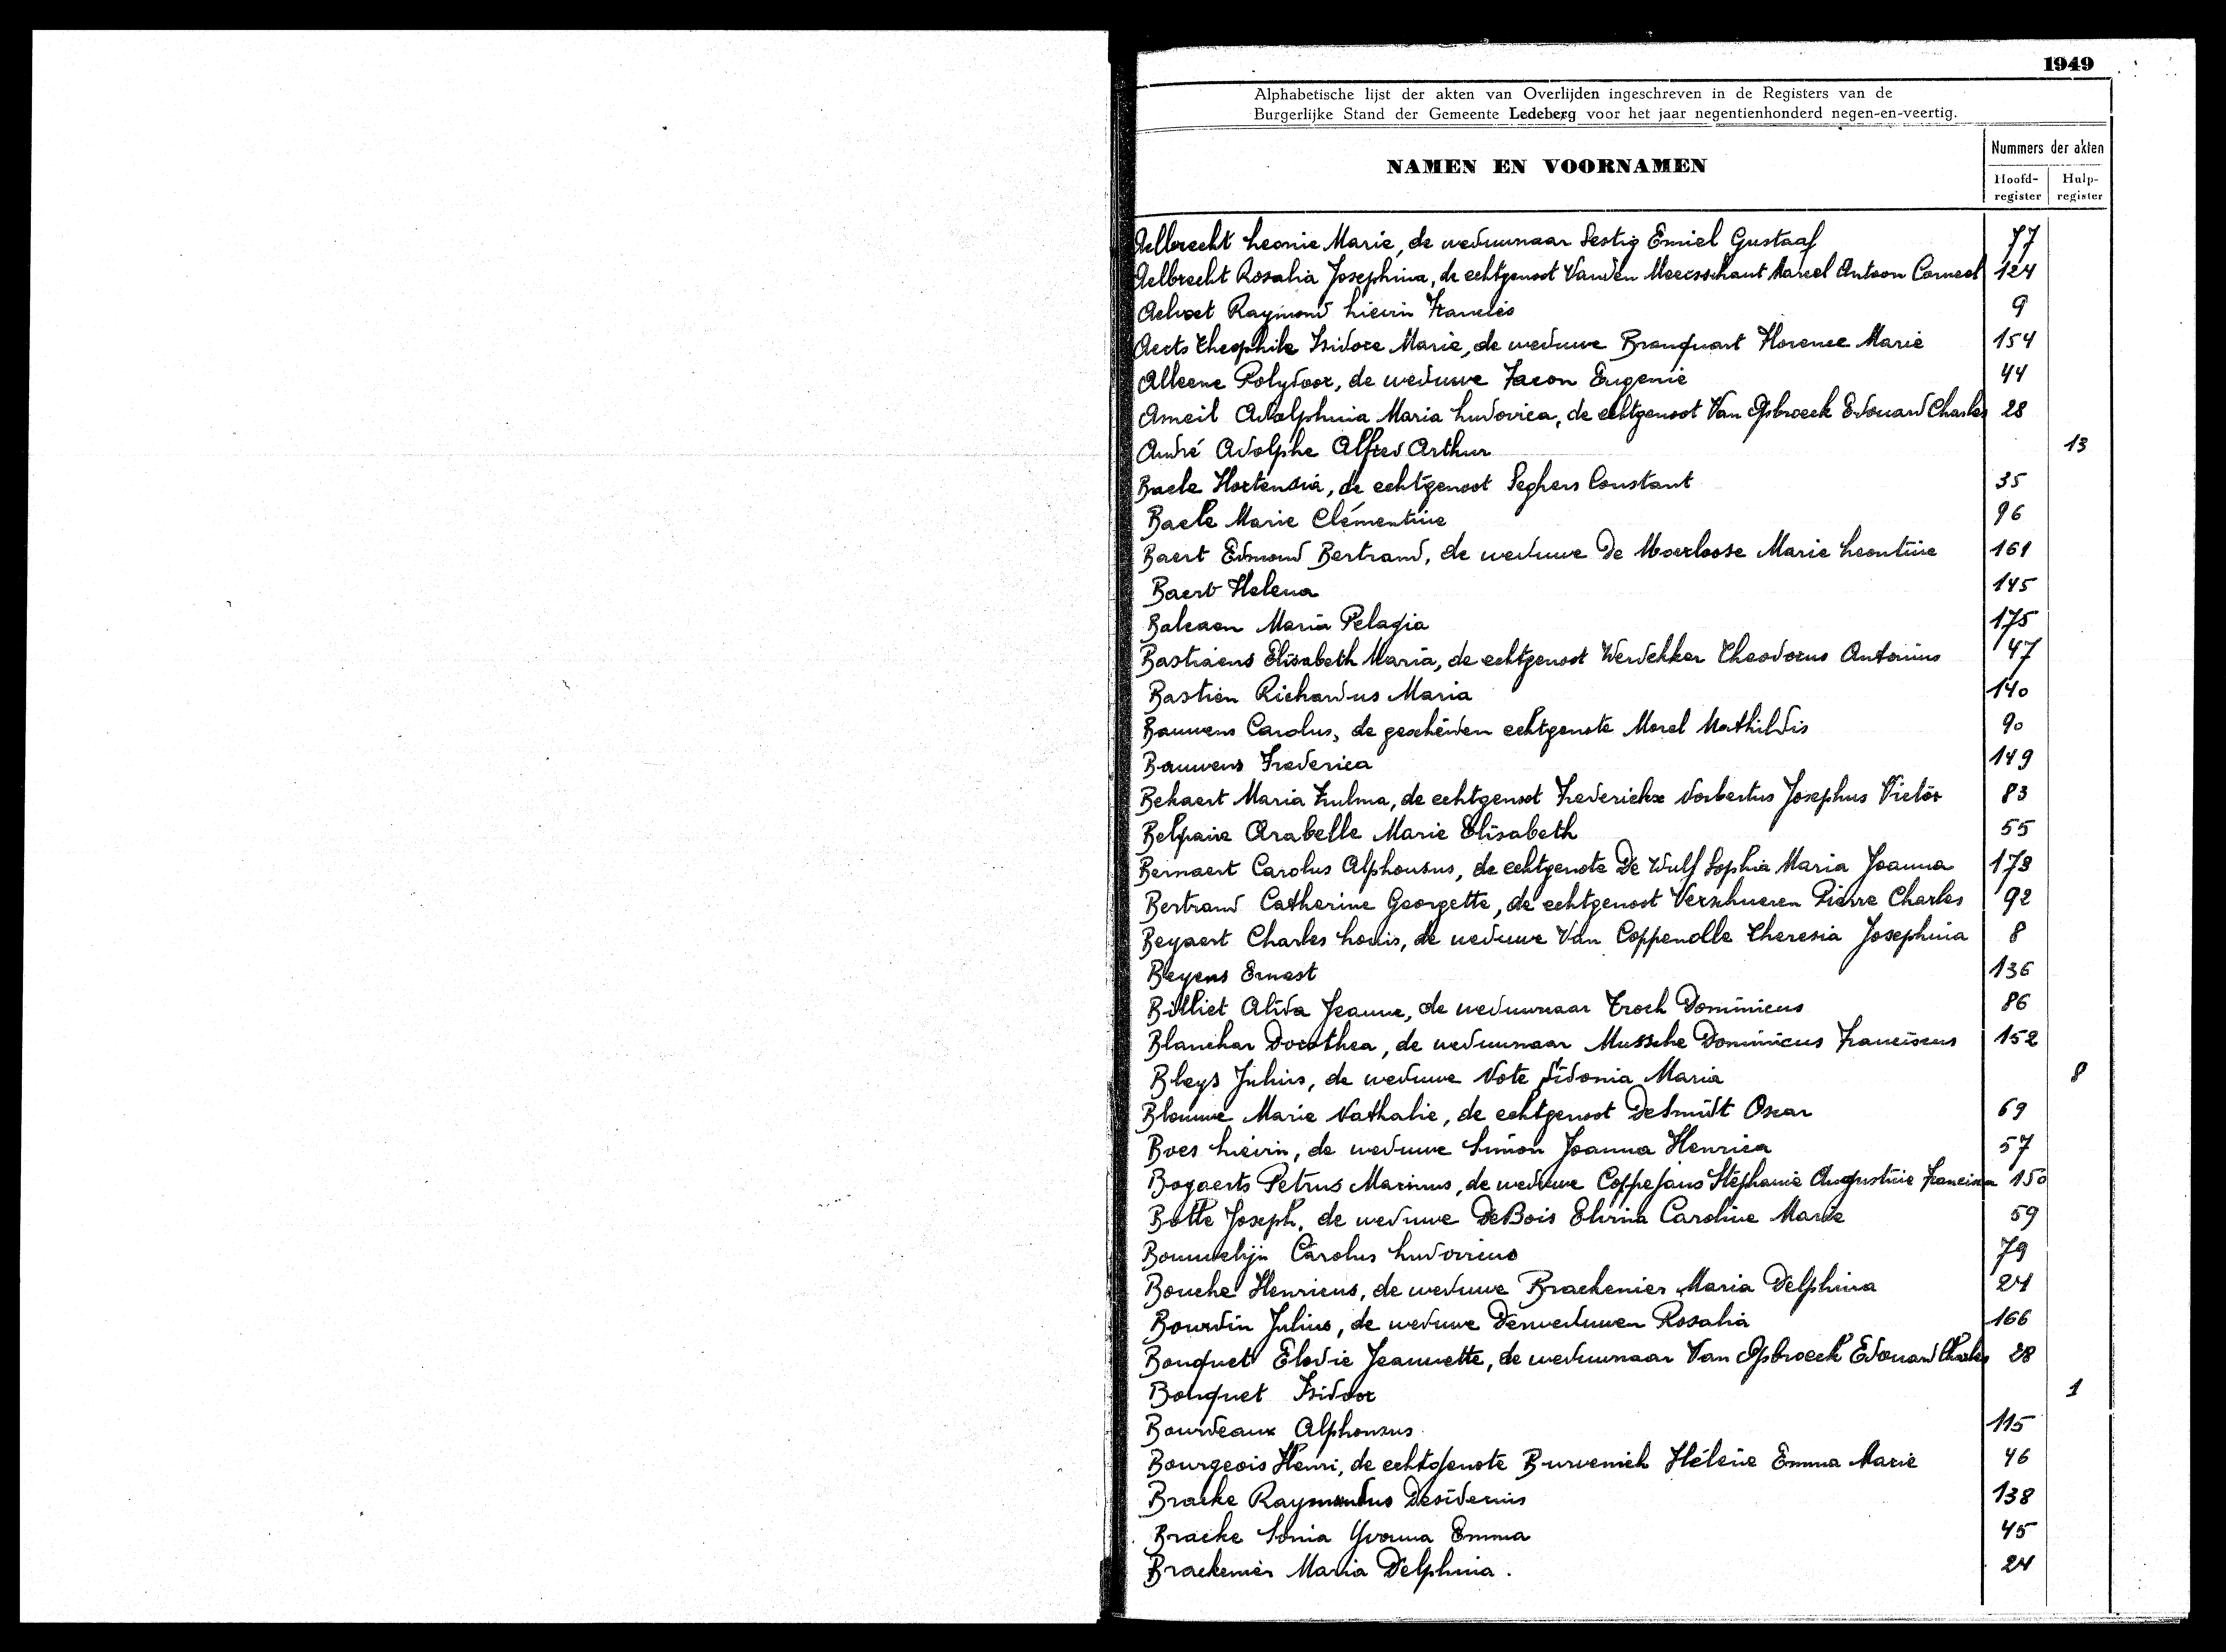 1949
Alphabetische lijst der akten van Overlijden ingeschreven in de Registers van de
Burgerlijke Stand der Gemeente Ledeberg voor het jaar negentienhonderd negen-en-veertig.
NAMEN EN VOORNAMEN
Nummers der akten
Hoofd-register Hulp-register
Aelbrecht Leonie Marie, de weduwnaar Sestig Emiel Gustaaf 77
Aelbrecht Rosalia Josephina, de echtgenoot Vanden Meersschaut Marcel Antoon Corneel 124
Aelvoet Raymond Lievin Francies 9
Aerts Theophile Isidore Marie, de weduwe Branquart Florence Marie 154
Alleene Polydoor, de weduwe Facon Eugenie 44
Ameil Adolphina Maria Ludovica, de echtgenoot Van Opbroeck Edouard Charles 28
André Adolphe Alfred Arthur 13
Baele Hortensia, de echtgenoot Seghers Constant 35
Baele Marie Clémentine 96
Baert Edmond Bertrand, de weduwe De Moerloose Marie Leontine 161
Baert Helena 145
Balcaen Maria Pelagia 175
Bastiaens Elisabeth Maria, de echtgenoot Werdekker Theodorus Antonius 47
Bastien Richardus Maria 140
Bauwens Carolus, de gescheiden echtgenote Morel Mathildis 90
Bauwens Frederica 149
Bekaert Maria Zulma, de echtgenoot Frederickx Norbertus Josephus Victor 83
Belpaire Arabelle Marie Elisabeth 55
Bernaert Carolus Alphonsus, de echtgenote De Wulf Sophia Maria Joanna 173
Bertrand Catherine Georgette, de echtgenoot Verschueren Pierre Charles 92
Beyaert Charles Louis, de weduwe Van Coppenolle Theresia Josephina 8
Beyens Ernest 136
Billiet Alida Jeanne, de weduwnaar Troch Dominicus 86
Blanchar Dorothea, de weduwnaar Mussche Dominicus Franciscus 152
Bleys Julius, de weduwe Note Sidonia Maria 8
Blomme Marie Nathalie, de echtgenoot DeSmidt Oscar 69
Boes Lievin, de weduwe Simon Joanna Henrica 57
Bogaerts Petrus Marinus, de weduwe Coppejans Stéphanie Augustine Francisca 150
Bolle Joseph, de weduwe DeBois Elvina Caroline Marie 59
Bommelijn Carolus Ludovicus 79
Bouche Henricus, de weduwe Brackenier Maria Delphina 24
Bourdin Julius, de weduwe Derweduwen Rosalia 166
Bouquet Elodie Jeannette, de weduwnaar Van Opbroeck Edouard Charles 28
Bouquet Isidoor 1
Bourdeaux Alphonsus 115
Bourgeois Henri, de echtgenote Burvenich Hélène Emma Marie 46
Bracke Raymundus Desiderius 138
Bracke Sonia Yvonna Emma 45
Brackenier Maria Delphina. 24